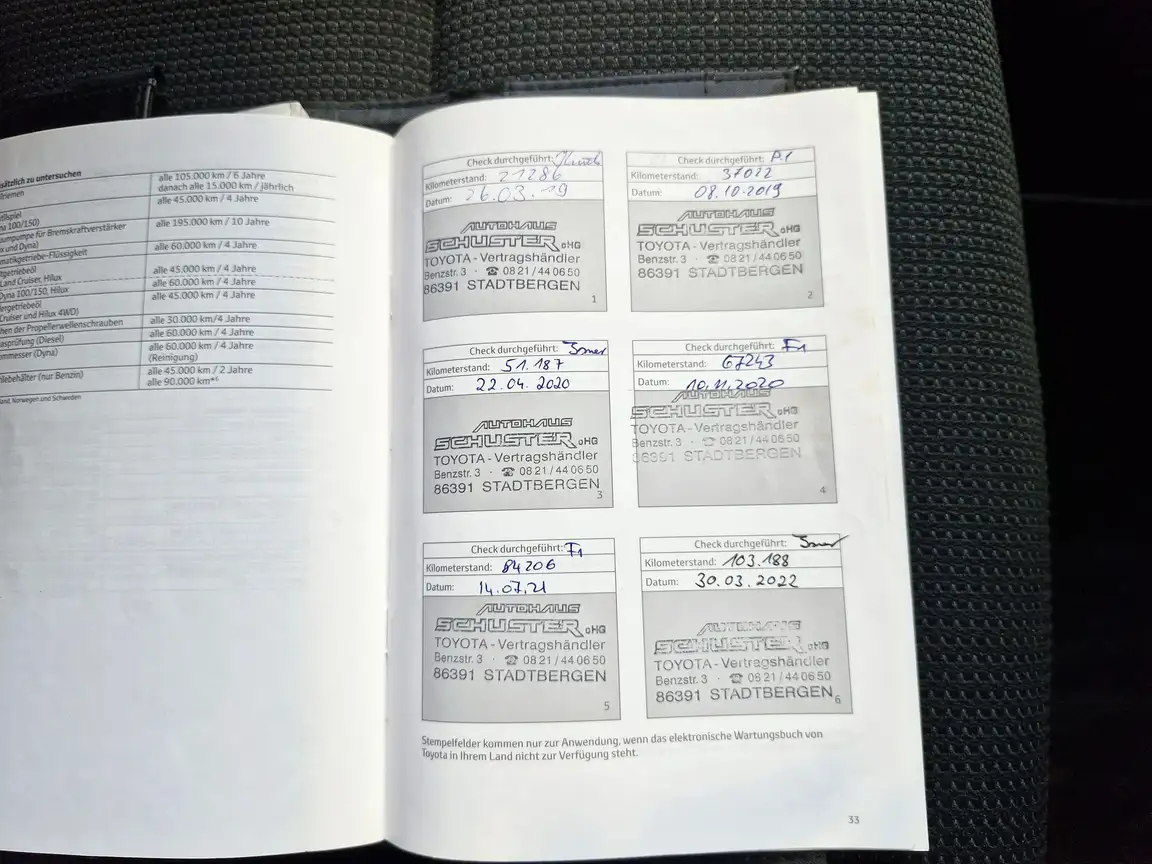 sätzlich zu untersuchen
riemen
alle 105.000 km / 6 Jahre
danach alle 15.000 km / jährlich
tilspiel
na 100/150)
alle 45.000 km / 4 Jahre
umpumpe für Bremskraftverstärker
x und Dyna)
alle 195.000 km / 10 Jahre
matikgetriebe-Flüssigkeit
alle 60.000 km / 4 Jahre
tgetriebeöl
alle 45.000 km / 4 Jahre
Land Cruiser, Hilux
alle 60.000 km / 4 Jahre
Dyna 100/150, Hilux
alle 45.000 km / 4 Jahre
ergetriebeöl
Cruiser und Hilux 4WD)
hen der Propellerwellenschrauben
alle 30.000 km/4 Jahre
asprüfung (Diesel)
alle 60.000 km / 4 Jahre
ommesser (Dyna)
alle 60.000 km / 4 Jahre
(Reinigung)
lebehälter (nur Benzin)
alle 45.000 km / 2 Jahre
alle 90.000 km*⁶
and, Norwegen und Schweden
Check durchgeführt:
Kilometerstand: 21286
Datum: 26.03.19
AUTOHAUS
SCHUSTER oHG
TOYOTA - Vertragshändler
Benzstr. 3 · ☎ 08 21 / 44 06 50
86391 STADTBERGEN
1
Check durchgeführt: P.1
Kilometerstand: 37022
Datum: 08.10.2019
AUTOHAUS
SCHUSTER oHG
TOYOTA - Vertragshändler
Benzstr. 3 · ☎ 08 21 / 44 06 50
86391 STADTBERGEN
2
Check durchgeführt:
Kilometerstand: 51.187
Datum: 22.04.2020
AUTOHAUS
SCHUSTER oHG
TOYOTA - Vertragshändler
Benzstr. 3 · ☎ 08 21 / 44 06 50
86391 STADTBERGEN
3
Check durchgeführt: F1
Kilometerstand: 67243
Datum: 10.11.2020
AUTOHAUS
SCHUSTER oHG
TOYOTA - Vertragshändler
Benzstr. 3 · ☎ 08 21 / 44 06 50
86391 STADTBERGEN
4
Check durchgeführt: F1
Kilometerstand: 84206
Datum: 14.07.21
AUTOHAUS
SCHUSTER oHG
TOYOTA - Vertragshändler
Benzstr. 3 · ☎ 08 21 / 44 06 50
86391 STADTBERGEN
5
Check durchgeführt:
Kilometerstand: 103.188
Datum: 30.03.2022
AUTOHAUS
SCHUSTER oHG
TOYOTA - Vertragshändler
Benzstr. 3 · ☎ 08 21 / 44 06 50
86391 STADTBERGEN
6
Stempelfelder kommen nur zur Anwendung, wenn das elektronische Wartungsbuch von
Toyota in Ihrem Land nicht zur Verfügung steht.
33